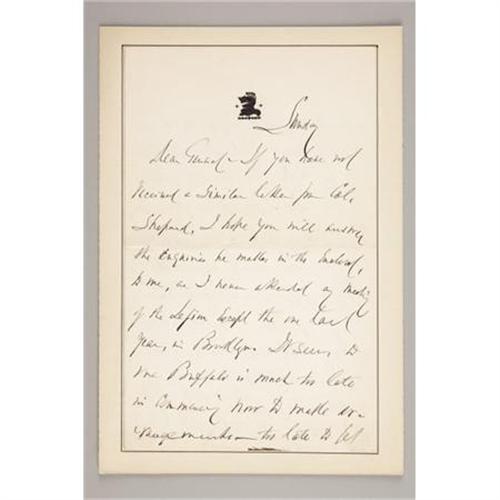 Sunday
Dear General - If you have not
received a similar letter from Col.
Shepard, I hope you will answer
the enquiries he makes in the enclosed,
to me, as I never attended any meeting
of the Legion except the one last
year, in Brooklyn. It seems to
me Buffalo is much too late
in commencing now to make ar-
rangements - too late to get